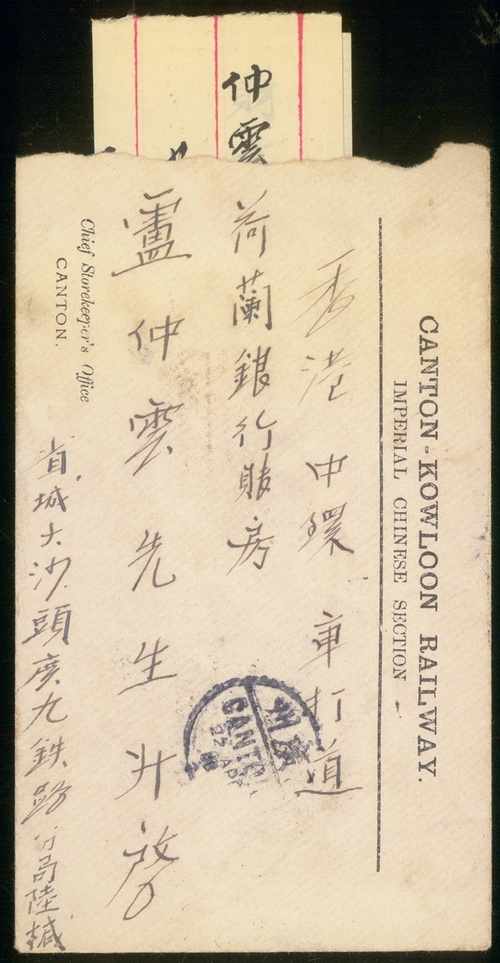 仲雲
CANTON-KOWLOON RAILWAY.
IMPERIAL CHINESE SECTION
香港中環車打道
荷蘭銀行賬房
盧仲雲先生升啓
Chief Storekeeper's Office
CANTON.
省城大沙頭廣九鉄路分局陸緘
廣州
CANTO
22 APR